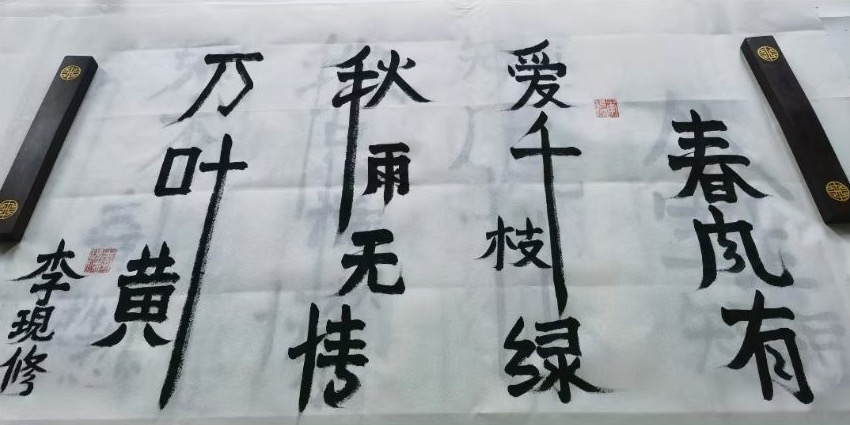 春风有
爱千枝绿
秋雨无情
万叶黄
李现修